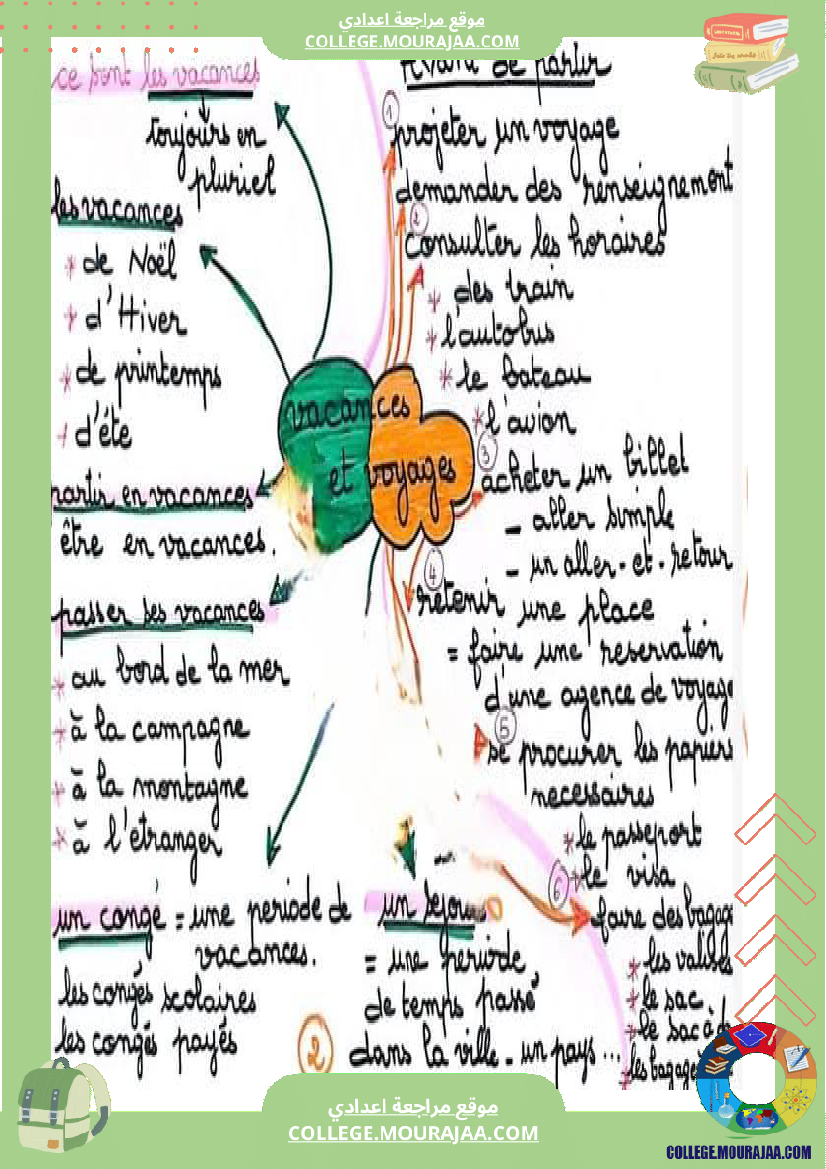 موقع مراجعة اعدادي
COLLEGE.MOURAJAA.COM
ce sont les vacances
toujours en
pluriel
les vacances
* de Noël
* d'Hiver
* de printemps
* d'éte
partir en vacances
être en vacances.
passer ses vacances
* au bord de la mer
* à la campagne
* à la montagne
* à l'etranger
un congé = une periode de
vacances.
les congés scolaires
les congés payés
vacances
et voyages
Avant de partir
1
projeter un voyage
demander des renseignement
2
consulter les horaires
* des train
* l'autobus
* le bateau
* l'avion
3
acheter un billet
- aller simple
- un aller-et-retour
4
retenir une place
= faire une reservation
d'une agence de voyage
5
se procurer les papiers
necessaires
* le passeport
* le visa
6
faire des bagag
* les valises
* le sac.
* le sac à d
* les bagages
un sejour
= une periode
de temps passé
dans la ville - un pays ...
2
موقع مراجعة اعدادي
COLLEGE.MOURAJAA.COM
COLLEGE.MOURAJAA.COM